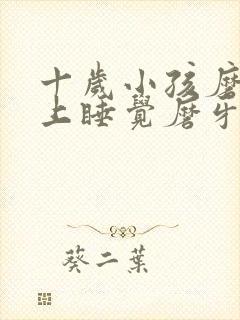 十歲小孩磨
上睡覺磨牙
葵二葉